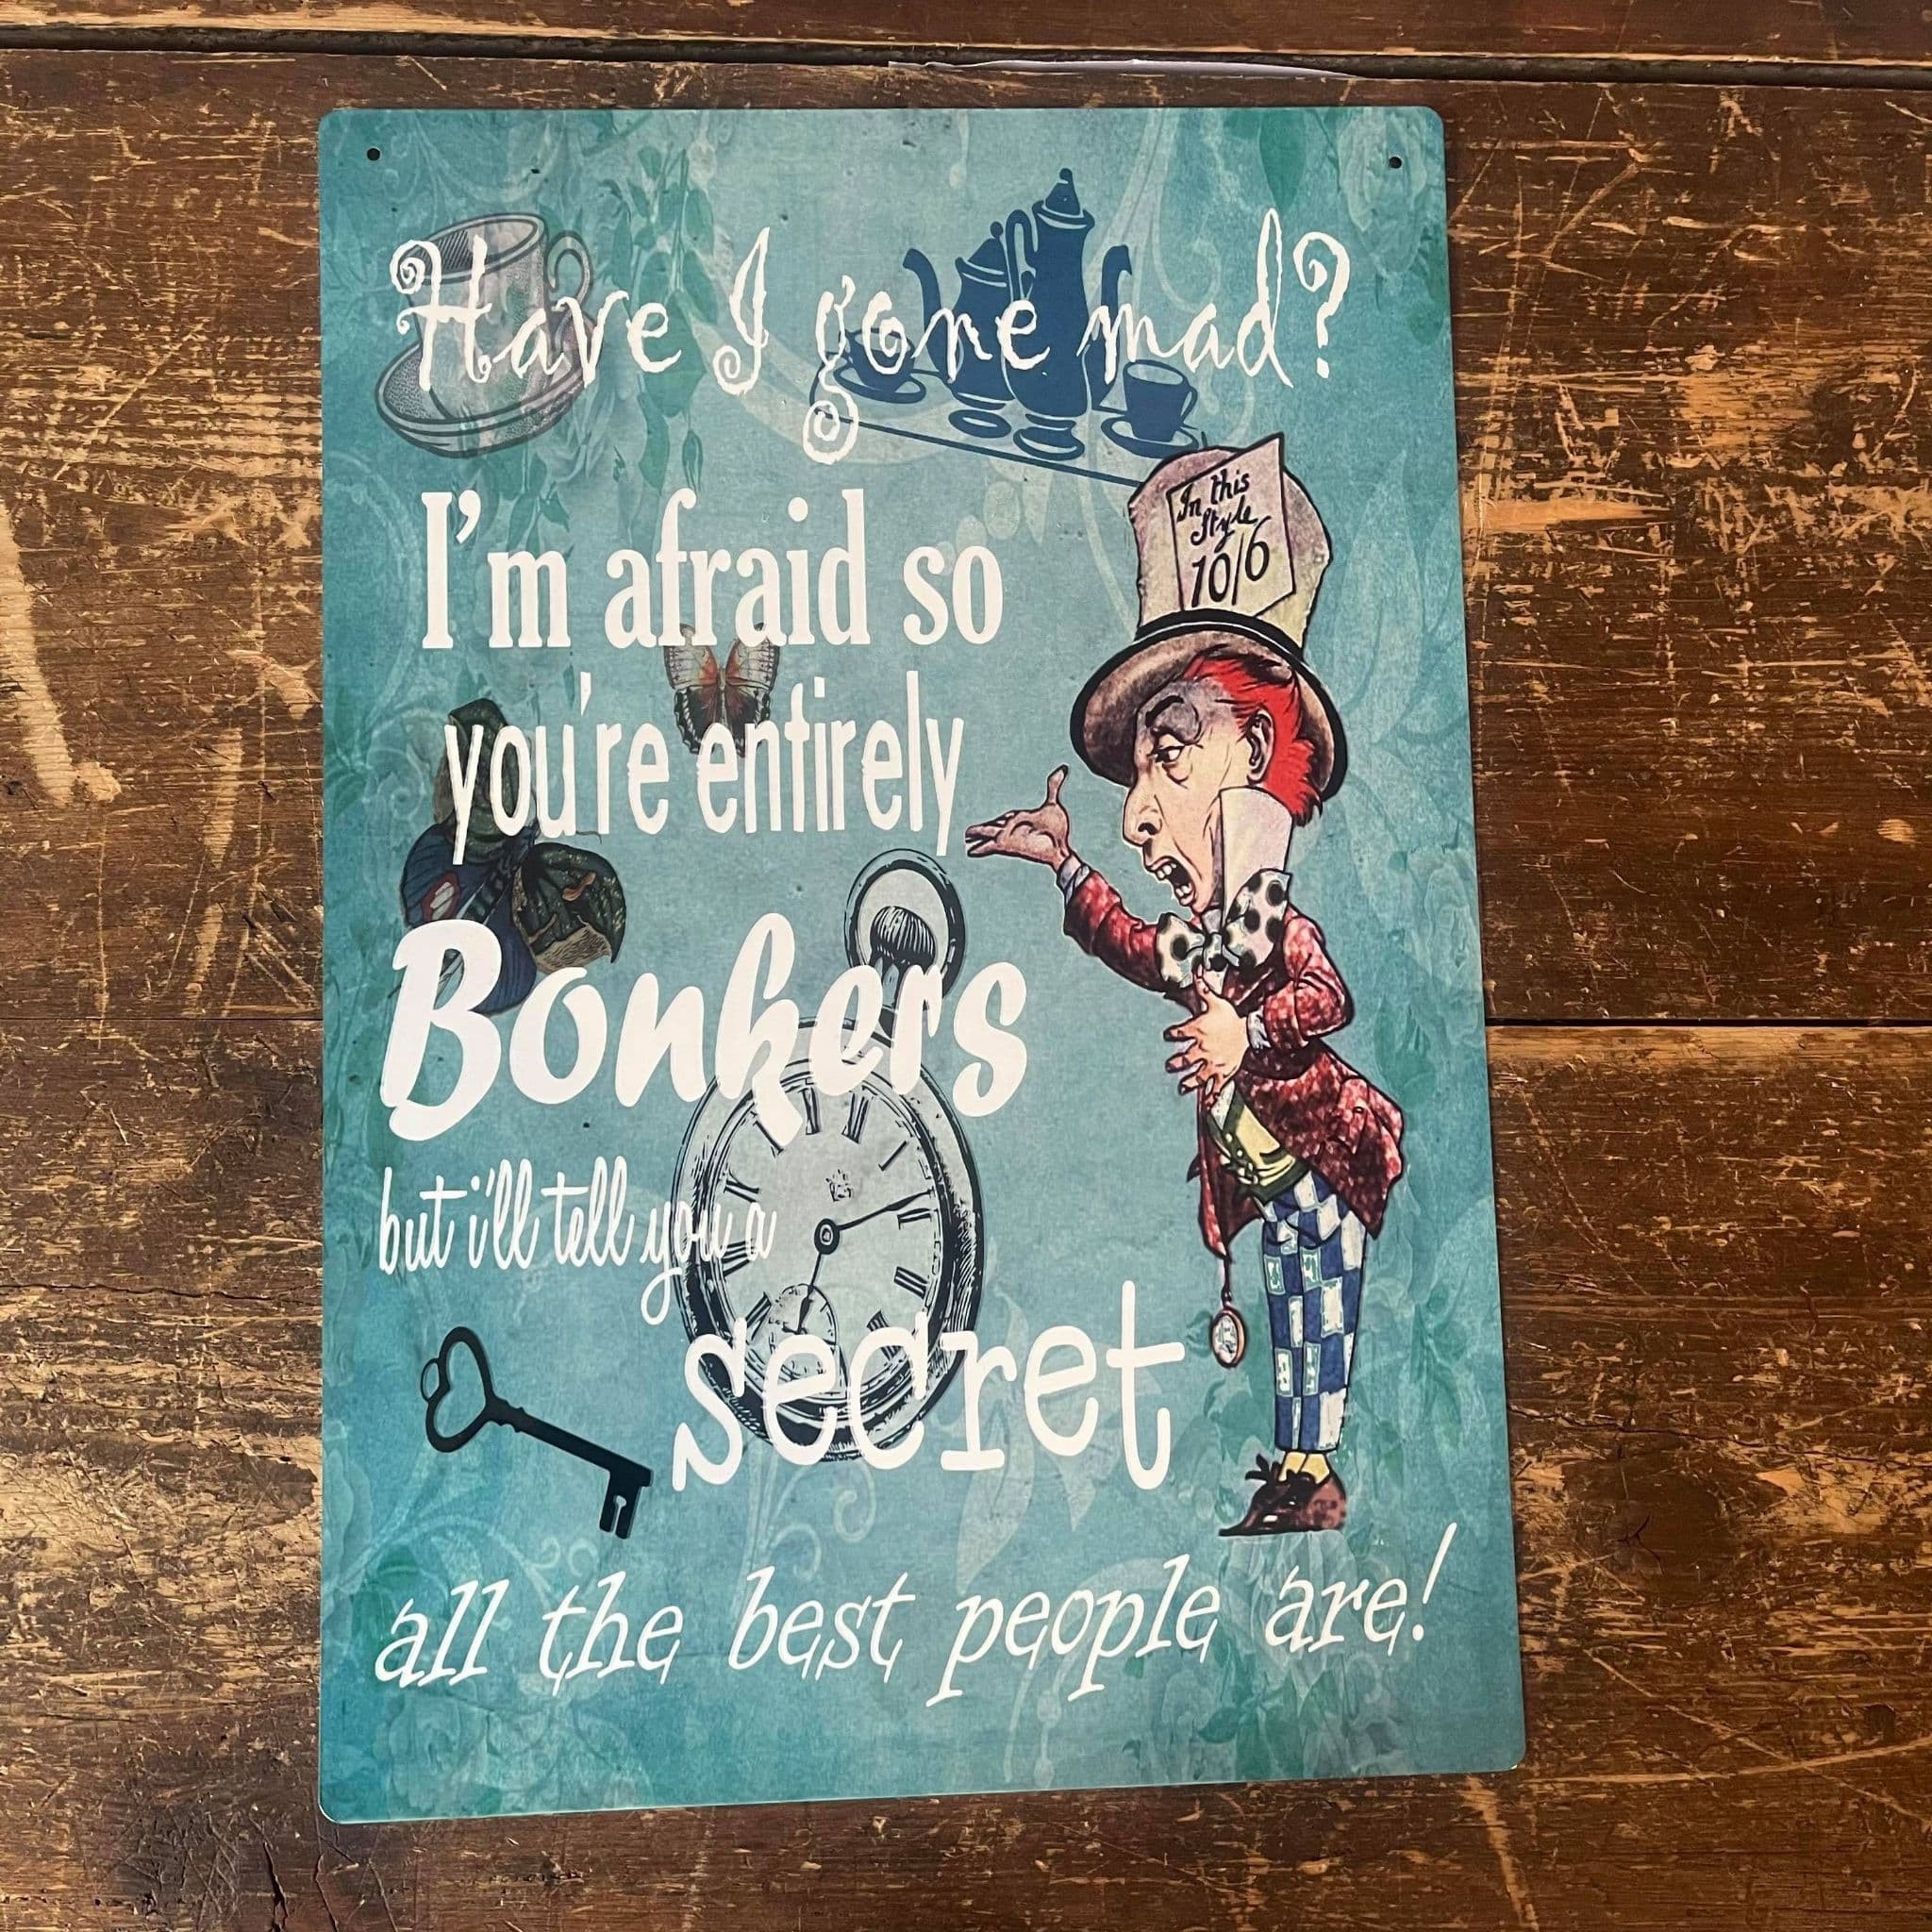 Have I gone mad?
In this
Style
10/6
I'm afraid so
you're entirely
Bonkers
but i'll tell you a
secret
all the best people are!